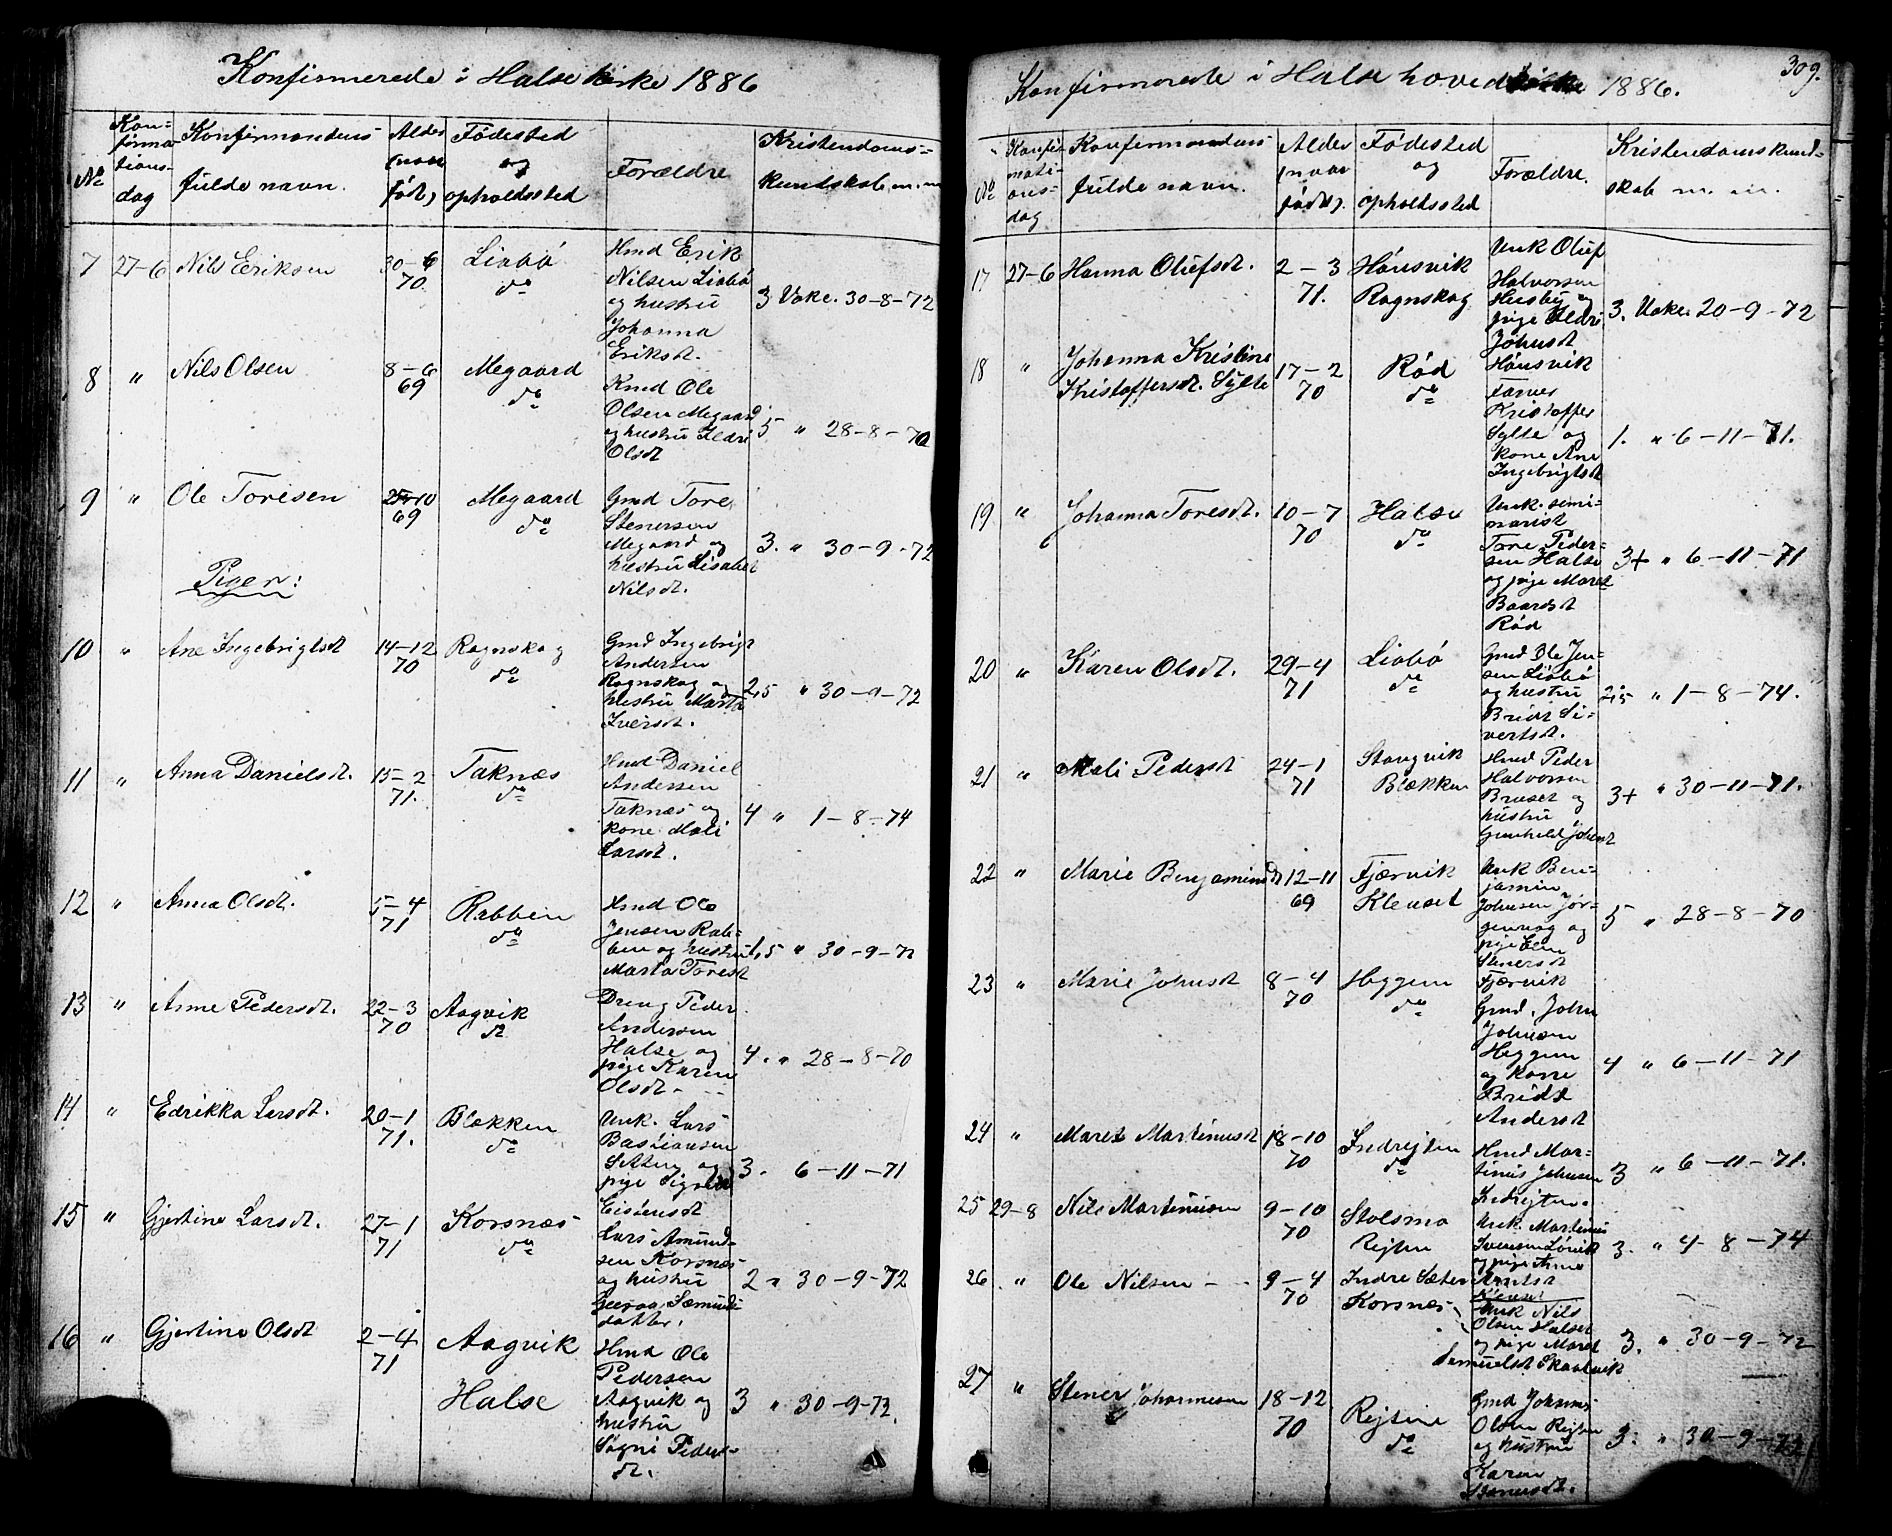 Konfirmerede i Halse kirke 1886
No
Kon=
firma=
tions=
dag
Konfirmandens
fulde navn.
Alder
(naar
født)
Fødested
og
opholdssted
Forældre
Kristendoms=
kundskab m. m
7 27-6 Nils Eriksen 30-6 70. Liabø do
Hmd Erik
Nilsen Liabø
og hustru
Johanna
Eriksdt.
3 Vake. 30-8-72
8 " Nils Olsen 8-6 69 Megaard do
Kmd Ole
Olsen Megaard
og hustru Ildri
Olsdt
5 " 28-8-70
9 " Ole Toresen 10 69 Megaard do
Gmd Tore
Stenersen
Megaard og
hustru Lisabet
Nilsdt.
3. " 30-9-72
Piger:
10 " Ane Ingebrigtsdt 14-12 70 Rognskog do
Gmd Ingebrigt
Andersen
Rognskog og
hustru Marta
Iversdt.
2,5 " 30-9-72
11 " Anna Danielsdt. 15-2 71. Taknæs do
Hmd Daniel
Andersen
Taknæs og
kone Mali
Larsdt.
4 " 1-8-74
12 " Anna Olsdt. 5-4 71 Rabben do
Hmd Ole
Jensen Rab-
ben og hustru
Marta Toresdt
1,5 " 30-9-72
13 " Anne Pedersdt. 22-3 70 Aagvik do
Dreng Peder
Andersen
Halse og
pige Karen
Olsdt-
4. " 28-8-70
14 " Edrikka Larsdt. 20-1 71. Blekken do
Unk. Lars
Bastiansen
Settem og
pige Sigrid
Eistensdt
3. 6-11-71
15 " Gjertine Larsdt. 27-1 71 Korsnæs do
Lars Amund-
sen Korsnæs
og hustru
Sæmunds
datter.
2 " 30-9-72
16 " Gjertine Olsdt 2-4 71 Aagvik Halse
Hmd Ole
Pedersen
Aagvik og
hustru
Søgni Peders-
dt.
3 " 30-9-72.
Konfirmerede i Halse hovedkirke 1886.
309.
No
Konfir-
mati-
ons-
dag
Konfirmandens
fulde navn.
Alder
(naar
født).
Fødested
og
opholdssted
Forældre.
Kristendomskund-
skab m. m.
17 27-6 Hanna Olufsdt. 2-3 71. Hønsvik Rognskog
Unk Oluf
Halvorsen
Husby og
pige Ildri
Johnsdt
Hønsvik
3. Vake. 20-9-72
18 " Johanna Kristine
Kristoffersdt. Sylte 17-2 70 Rød do
Farver
Kristoffer
Sylte og
kone Ane
Ingebrigtsdt
1. " 6-11-71.
19 " Johanna Toresdt. 10-7 70 Halse do
Unk. semi-
narist
Tore Peder-
sen Halse
og pige Maret
Baardsdt
Rød
3+ " 6-11-71
20 " Karen Olsdt. 29-4 71 Liabø do
Gmd Ole Jen-
sen Liabø
og hustru
Bridt Si-
vertsdt.
2,5 " 1-8-74.
21 " Mali Pedersdt 24-1 71 Stangvik Blekken
Hmd Peder
Halvorsen
Bruset og
hustru
Gunhild Johnsdt
3+ " 30-11-71.
22 " Marie Benjaminsdt 12-11 69 Fjærvik Klevset
Unk Ben-
jamin
Johnsen Jør-
genvaag og
pige Elen
Stenersdt
Fjærvik
5 " 28-8-70
23 " Marie Johnsdt 8-4 70 Heggem do
Gmd. John
Johnsen
Heggem
og kone
Bridt
Andersdt
4 " 6-11-71
24 " Maret Martinusdt 18-10 70 Indrejten do
Hmd Mar-
tinus Johnsen
Indrejten.
3 " 6-11-71.
25 29-8 Nils Martinusen 9-10 70 Stolsmo Rejten
Unk. Martinus
Iversen Lørvik
og pige Anne
3. " 4-8-74
26 " Ole Nilsen - 9-4 70 Indre Sæter Korsnæs
Unk Nils
Olsen Halset
og pige Maret
Semuelsdt Skaalvik
3. " 30-9-72
27 " Stener Johannesen 18-12 70 Rejten do
Gmd Johannes
Olsen Rejten
og hustru
Karen
Stenersdt.
3. " 30-9-72